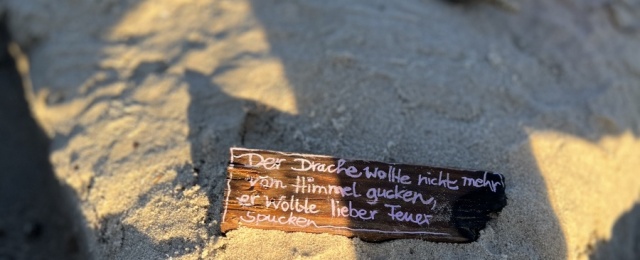 Der Drache wollte nicht mehr
vom Himmel gucken,
er wollte lieber Feuer
spucken